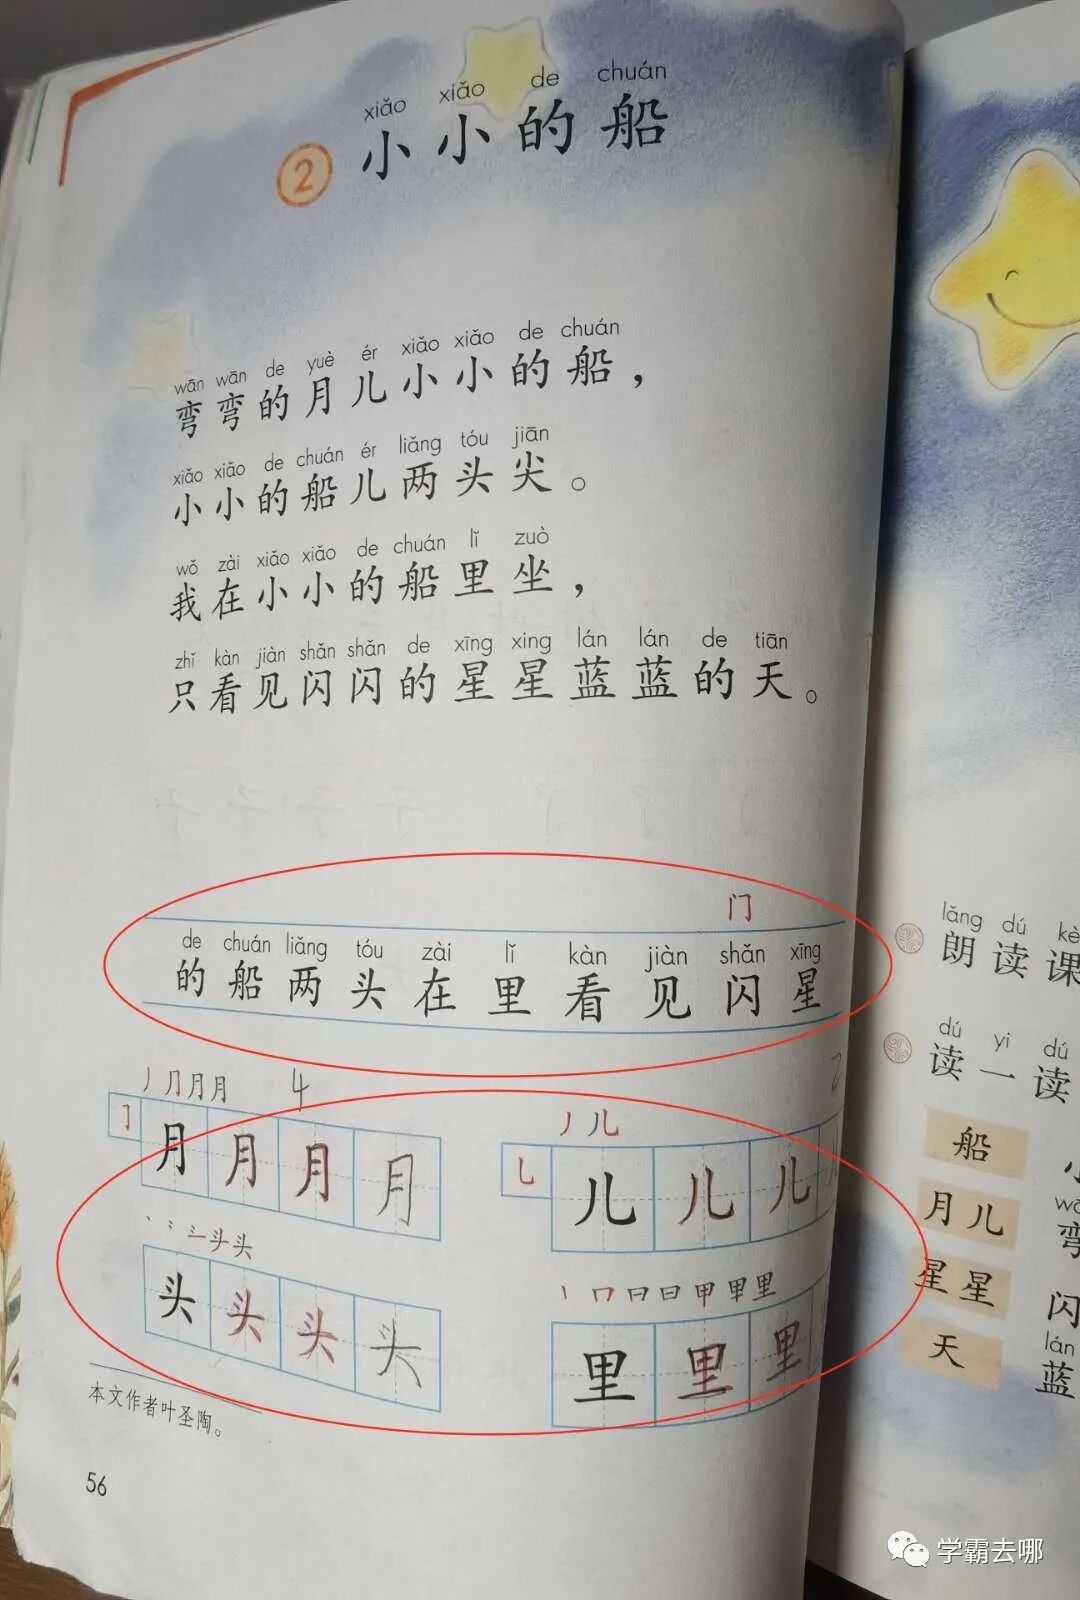 xiǎo xiǎo de chuán
2 小小的船
wān wān de yuè ér xiǎo xiǎo de chuán
弯弯的月儿小小的船，
xiǎo xiǎo de chuán ér liǎng tóu jiān
小小的船儿两头尖。
wǒ zài xiǎo xiǎo de chuán lǐ zuò
我在小小的船里坐，
zhǐ kàn jiàn shǎn shǎn de xīng xing lán lán de tiān
只看见闪闪的星星蓝蓝的天。
门
de chuán liǎng tóu zài lǐ kàn jiàn shǎn xīng
的船两头在里看见闪星
丿 ⺆ 月 月 4
㇆ 月 月 月 月
丶 ⺀ 头 头
头 头 头 头
丿 儿 2
乚 儿 儿 儿
丨 口 日 日 甲 甲 里
里 里 里
本文作者叶圣陶。
56
lǎng dú kè
朗读课
dú yi dú
读一读
船
月儿
星星
天
弯
闪
lán
蓝
学霸去哪